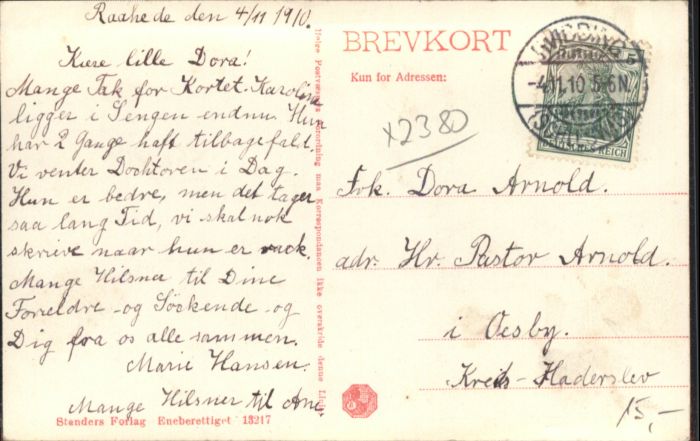 Raahede den 4/11 1910.
Kære lille Dora!
Mange Tak for Kortet. Karoline
ligger i Sengen endnu. Hun
har 2 Gange haft tilbagefald.
Vi venter Docktoren i Dag.
Hun er bedre, men det tager
saa lang Tid, vi skal nok
skrive naar hun er rask.
Mange Hilsner til Dine
Forældre og Söskende og
Dig fra os alle sammen.
Marie Hansen.
Mange Hilsner til Ane.
Standers Forlag Eneberettiget 13217
Ifølge Postvæsenets Anordning maa Korrespondancen ikke overskride denne Linie
BREVKORT
Kun for Adressen:
x2380
-4.11.10 5-6N.
DEUTSCHES REICH
5
Frk. Dora Arnold.
adr. Hr. Pastor Arnold.
i Oesby.
Kreis-Haderslev
15,-